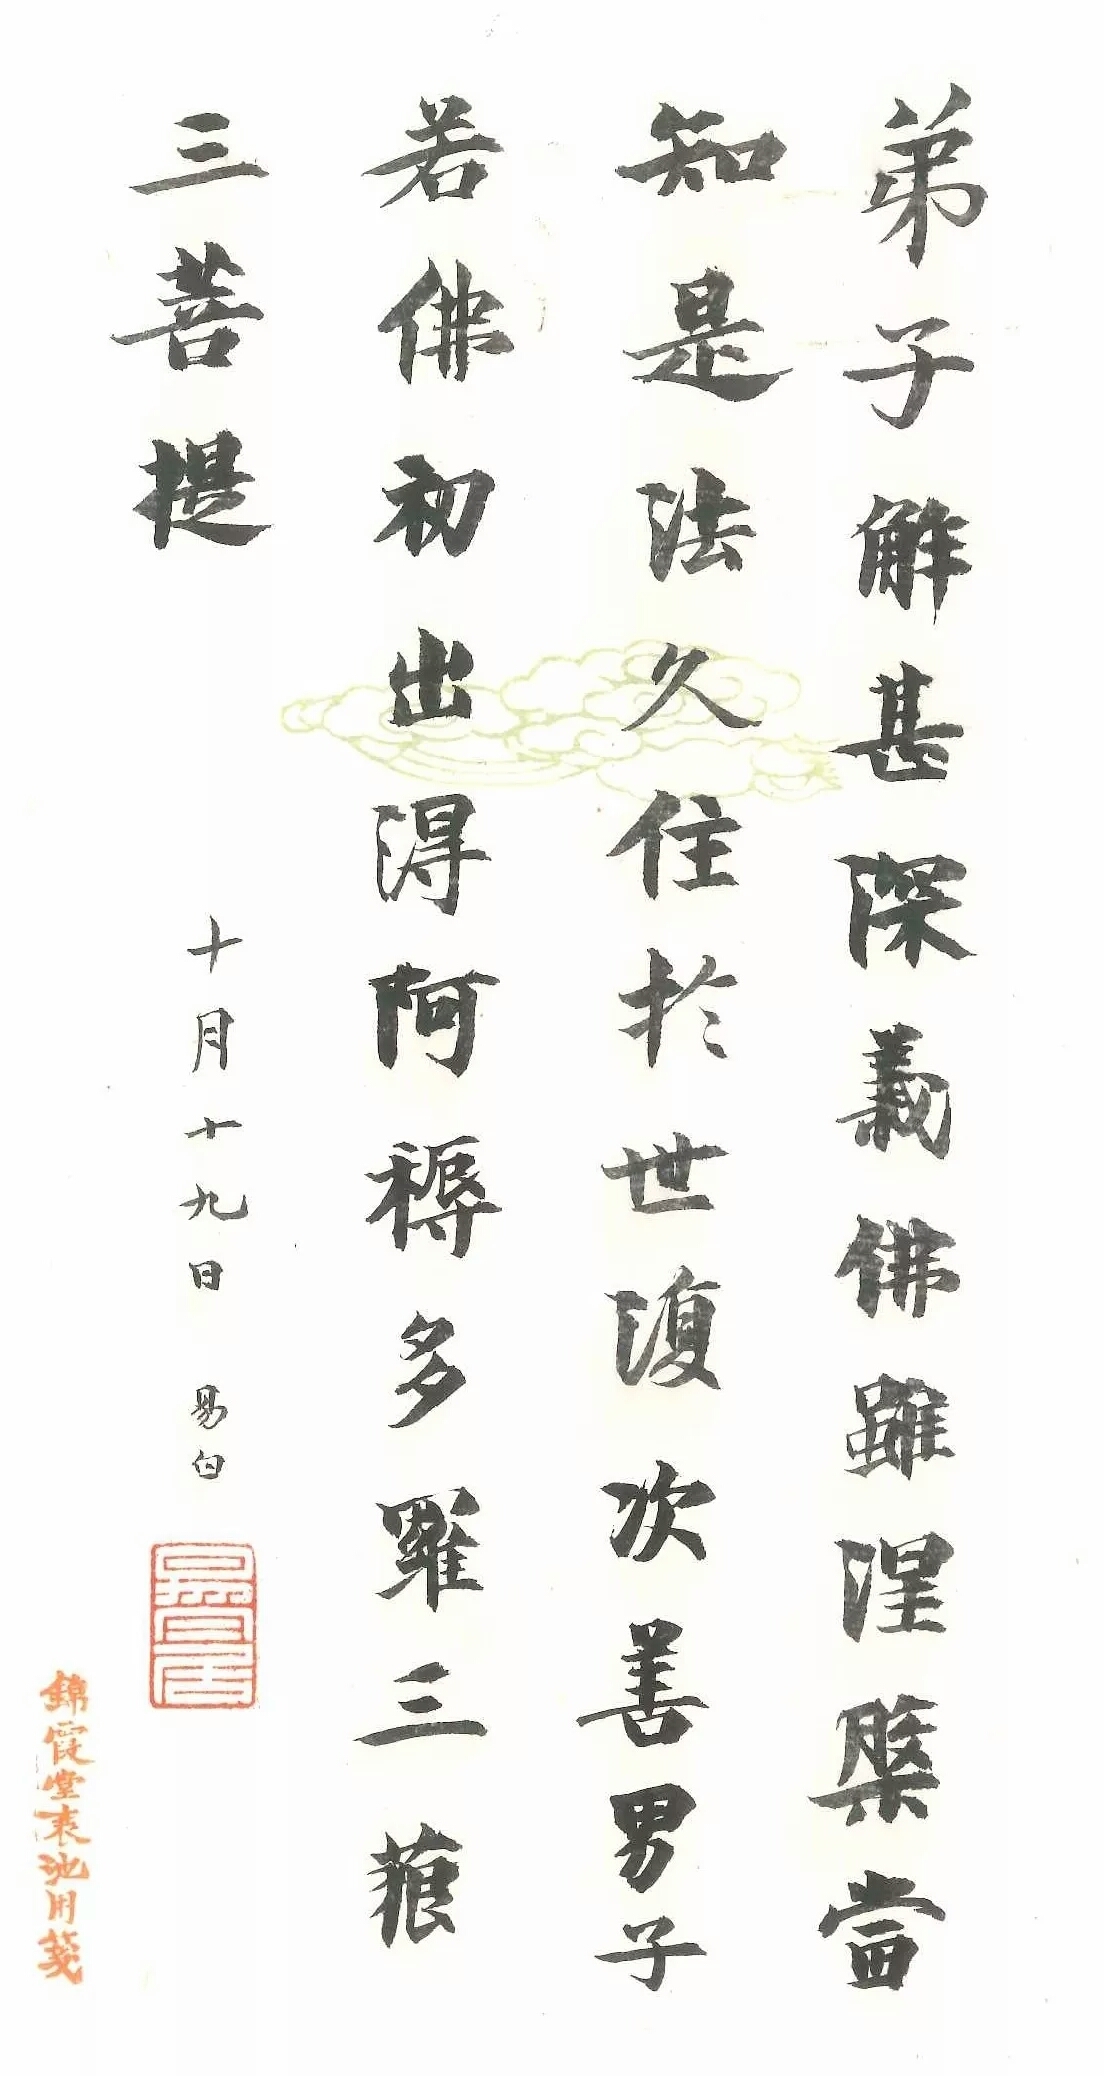 弟子解甚深義佛雖涅槃當
知是法久住於世復次善男子
若佛初出得阿耨多羅三藐
三菩提
十月十九日 易白
錦霞堂表池用箋